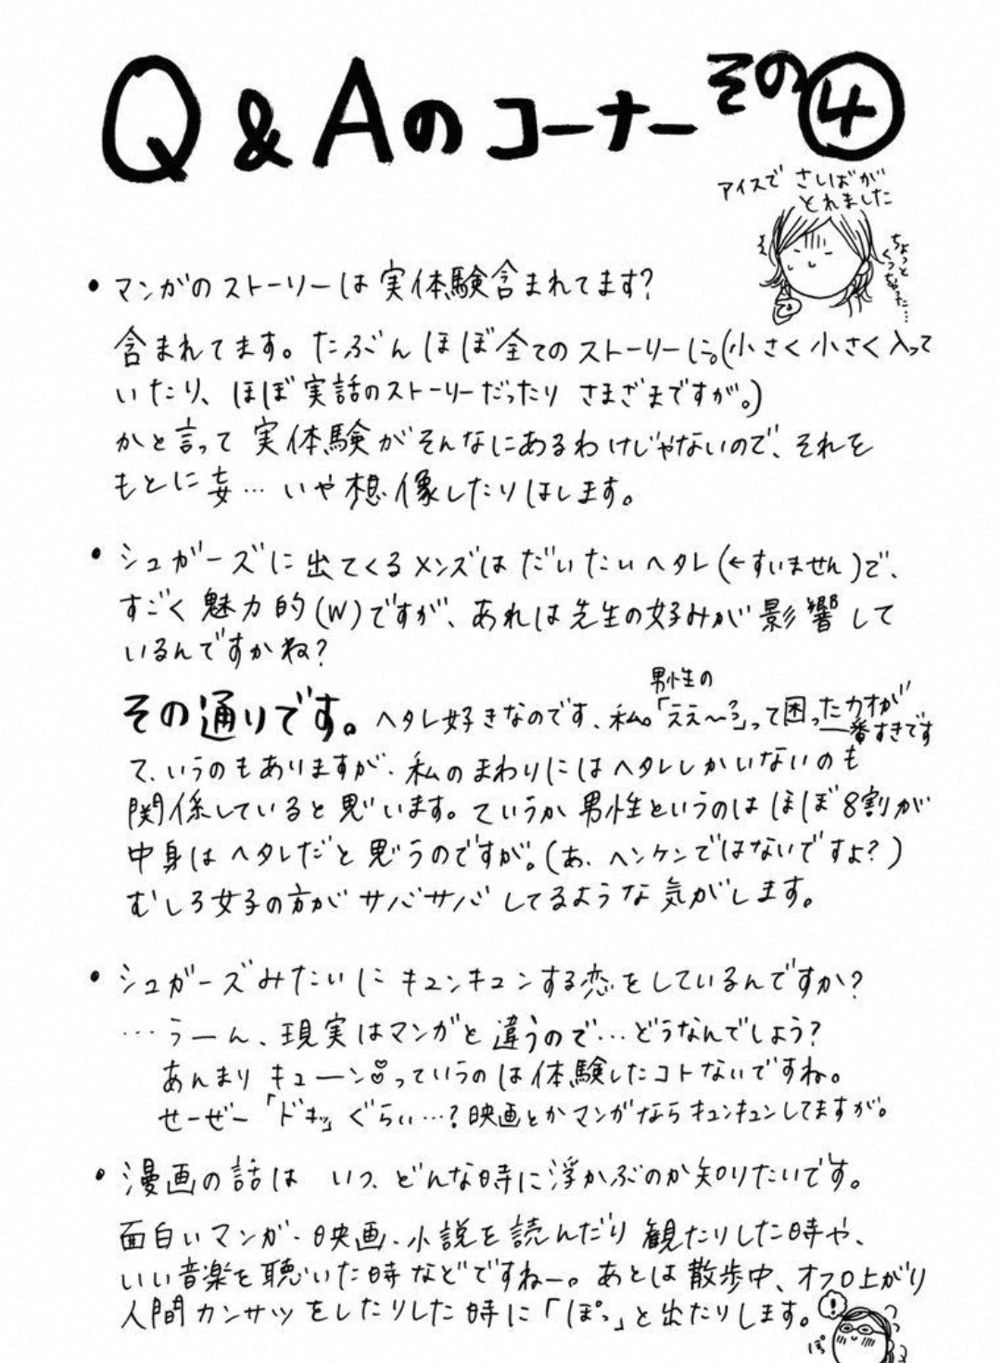 Q&Aのコーナーその④
アイスで さしばが
とれました
ちょっと
くっちゃった…
・マンガのストーリーは実体験含まれてます?
含まれてます。たぶんほぼ全てのストーリーに。(小さく小さく入って
いたり、ほぼ実話のストーリーだったり さまざまですが。)
かと言って実体験がそんなにあるわけじゃないので、それを
もとに妄…いや想像したりはします。
・シュガーズに出てくるメンズはだいたいヘタレ(←すいません)で、
すごく魅力的(W)ですが、あれは先生の好みが影響して
いるんですかね?
男性の
その通りです。ヘタレ好きなのです、私。「ええ〜?」って困ったカオが
一番すきです
て、いうのもありますが、私のまわりにはヘタレしかいないのも
関係していると思います。ていうか男性というのはほぼ8割が
中身はヘタレだと思うのですが。(あ、ヘンケンではないですよ?)
むしろ女子の方がサバサバしてるような気がします。
・シュガーズみたいにキュンキュンする恋をしているんですか?
…うーん、現実はマンガと違うので…どうなんでしょう?
あんまりキューン っていうのは体験したコトないですね。
せーぜー「ドキッ」ぐらい…?映画とかマンガならキュンキュンしてますが。
・漫画の話は いつ、どんな時に浮かぶのか知りたいです。
面白いマンガ・映画・小説を読んだり観たりした時や、
いい音楽を聴いた時などですねー。あとは散歩中、オフロ上がり
人間カンサツをしたりした時に「ぽっ」と出たりします。
!
ぽ